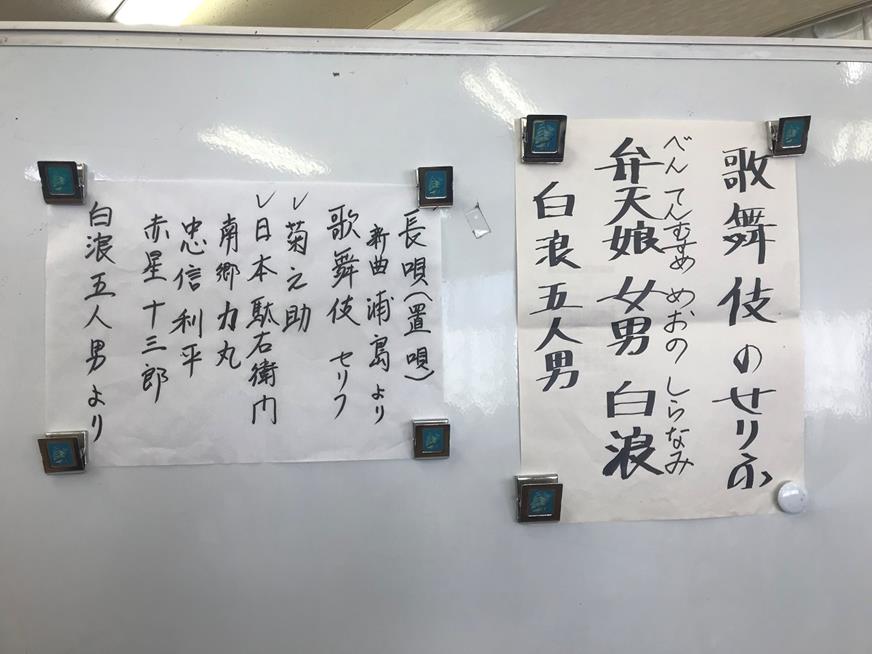 歌舞伎のせりふ
べんてんむすめ めおの しらなみ
弁天娘 女男 白浪
白浪五人男
長唄(置唄)
新曲 浦島より
歌舞伎 セリフ
✓菊之助
✓日本駄右衛門
南郷力丸
忠信利平
赤星十三郎
白浪五人男より